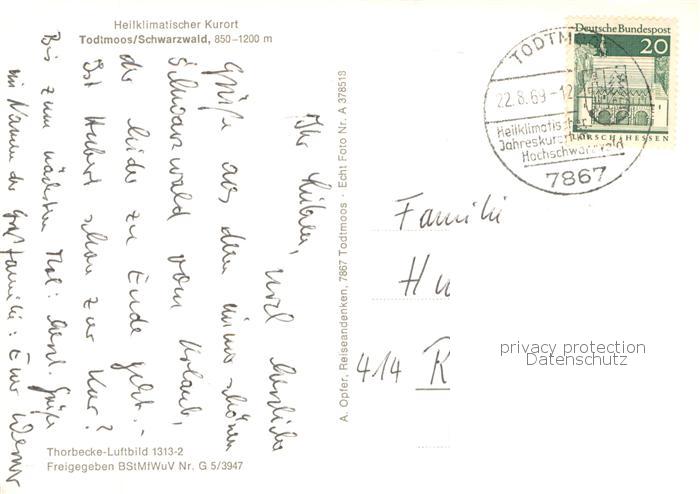 Heilklimatischer Kurort
Todtmoos/Schwarzwald, 850–1200 m
Ihr Lieben, viel herzliche
Grüße aus dem immer schönen
Schwarzwald vom Urlaub,
der leider zu Ende geht.
Ist Hubert schon zur Kur?
Bis zum nächsten Mal: herzl. Grüße
im Namen der Großfamilie: Euer Werner
Thorbecke-Luftbild 1313-2
Freigegeben BStMfWuV Nr. G 5/3947
A. Opfer, Reiseandenken, 7867 Todtmoos · Echt Foto Nr. A 378518
TODTMOO
22.8.69-12
Heilklimatischer
Jahreskurort im
Hochschwarzwald
7867
Deutsche Bundespost
20
LORSCH · HESSEN
Familie
Hu
414 K
privacy protection
Datenschutz